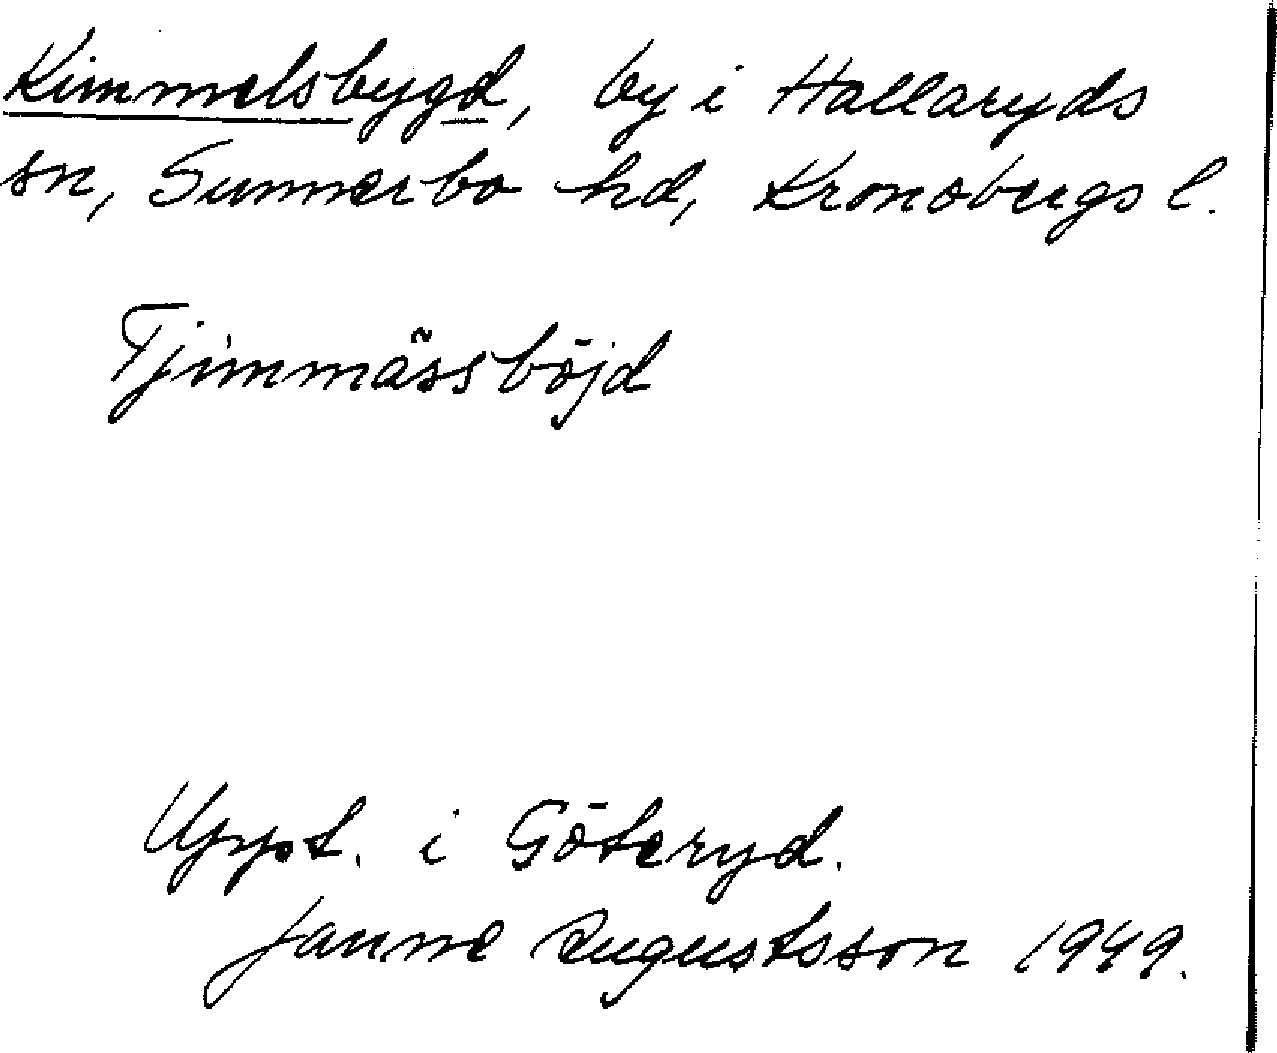 Kimmelsbygd, by i Hallaryds
sn, Sunnerbo hd, Kronobergs l.
Tjimmässböjd
Uppt. i Göteryd.
Janne Augustsson 1949.